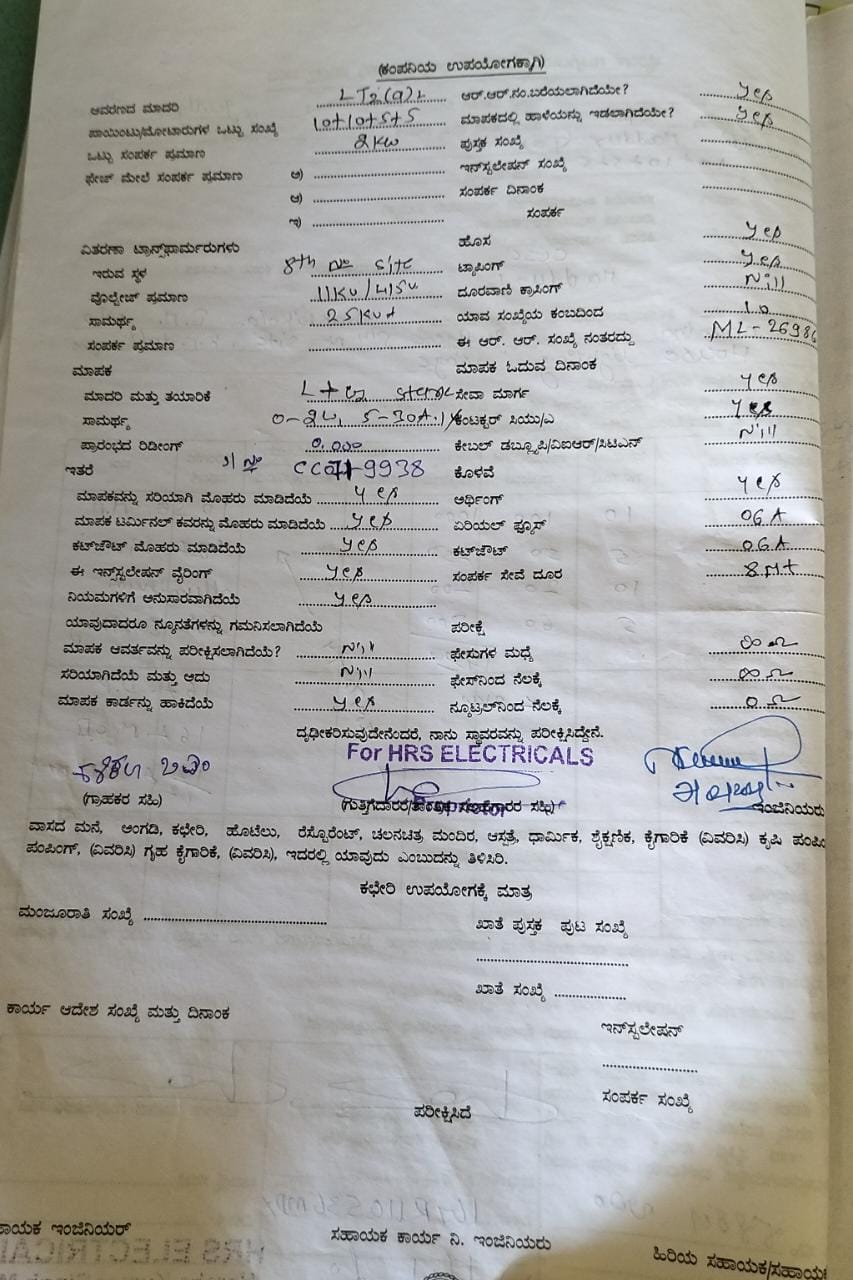 (ಕಂಪನಿಯ ಉಪಯೋಗಕ್ಕಾಗಿ)
ಆವರಣದ ಮಾದರಿ LT2(a)1 ಆರ್.ಆರ್.ನಂ.ಬರೆಯಲಾಗಿದೆಯೇ? yes
ಪಾಯಿಂಟು/ಮೋಟಾರುಗಳ ಒಟ್ಟು ಸಂಖ್ಯೆ 10+10+5+5 ಮಾಪಕದಲ್ಲಿ ಹಾಳೆಯನ್ನು ಇಡಲಾಗಿದೆಯೇ? yes
ಒಟ್ಟು ಸಂಪರ್ಕ ಪ್ರಮಾಣ 2KW ಪುಸ್ತಕ ಸಂಖ್ಯೆ
ಫೇಜ್ ಮೇಲೆ ಸಂಪರ್ಕ ಪ್ರಮಾಣ ಅ) ಇನ್‌ಸ್ಟಲೇಷನ್ ಸಂಖ್ಯೆ
ಆ) ಸಂಪರ್ಕ ದಿನಾಂಕ
ಇ) ಸಂಪರ್ಕ
ವಿತರಣಾ ಟ್ರಾನ್ಸ್‌ಫಾರ್ಮರುಗಳು ಹೊಸ yes
ಇರುವ ಸ್ಥಳ 8th No site ಟ್ಯಾಪಿಂಗ್ yes
ವೋಲ್ಟೇಜ್ ಪ್ರಮಾಣ 11KV/415V ದೂರವಾಣಿ ಕ್ರಾಸಿಂಗ್ Nill
ಸಾಮರ್ಥ್ಯ 25KVA ಯಾವ ಸಂಖ್ಯೆಯ ಕಂಬದಿಂದ 10
ಸಂಪರ್ಕ ಪ್ರಮಾಣ ಈ ಆರ್. ಆರ್. ಸಂಖ್ಯೆ ನಂತರದ್ದು ML-26986
ಮಾಪಕ ಮಾಪಕ ಓದುವ ದಿನಾಂಕ
ಮಾದರಿ ಮತ್ತು ತಯಾರಿಕೆ L+ ಸೇವಾ ಮಾರ್ಗ yes
ಸಾಮರ್ಥ್ಯ 5-30A ಕಂಟಕ್ಟರ್ ಸಿಯು/ಎ yes
ಪ್ರಾರಂಭದ ರಿಡೀಂಗ್ 0.000 ಕೇಬಲ್ ಡಬ್ಲ್ಯೂಪಿ/ವಿಐಆರ್/ಸಿಟಿಎನ್ Nill
ಇತರೆ 9938 ಕೊಳವೆ
ಮಾಪಕವನ್ನು ಸರಿಯಾಗಿ ಮೊಹರು ಮಾಡಿದೆಯೆ yes ಅರ್ಥಿಂಗ್ yes
ಮಾಪಕ ಟರ್ಮಿನಲ್ ಕವರನ್ನು ಮೊಹರು ಮಾಡಿದೆಯೆ yes ಏರಿಯಲ್ ಫ್ಯೂಸ್ 06A
ಕಟ್‌ಔಟ್ ಮೊಹರು ಮಾಡಿದೆಯೆ yes ಕಟ್‌ಔಟ್ 06A
ಈ ಇನ್ಸ್‌ಸ್ಟಲೇಷನ್ ವೈರಿಂಗ್ yes ಸಂಪರ್ಕ ಸೇವೆ ದೂರ 8Mt
ನಿಯಮಗಳಿಗೆ ಅನುಸಾರವಾಗಿದೆಯೆ yes
ಯಾವುದಾದರೂ ನ್ಯೂನತೆಗಳನ್ನು ಗಮನಿಸಲಾಗಿದೆಯೆ ಪರೀಕ್ಷೆ
ಮಾಪಕ ಆವರ್ತವನ್ನು ಪರೀಕ್ಷಿಸಲಾಗಿದೆಯೆ? Nill ಫೇಸುಗಳ ಮಧ್ಯೆ ∞Ω
ಸರಿಯಾಗಿದೆಯೆ ಮತ್ತು ಅದು Nill ಫೇಸ್‌ನಿಂದ ನೆಲಕ್ಕೆ ∞Ω
ಮಾಪಕ ಕಾರ್ಡನ್ನು ಹಾಕಿದೆಯೆ yes ನ್ಯೂಟ್ರಲ್‌ನಿಂದ ನೆಲಕ್ಕೆ 0Ω
ದೃಢೀಕರಿಸುವುದೇನೆಂದರೆ, ನಾನು ಸ್ಥಾವರವನ್ನು ಪರೀಕ್ಷಿಸಿದ್ದೇನೆ.
For HRS ELECTRICALS
(ಗ್ರಾಹಕರ ಸಹಿ) ಇಂಜಿನಿಯರು
ವಾಸದ ಮನೆ, ಅಂಗಡಿ, ಕಛೇರಿ, ಹೊಟೆಲು, ರೆಸ್ಟೊರೆಂಟ್, ಚಲನಚಿತ್ರ ಮಂದಿರ, ಆಸ್ಪತ್ರೆ, ಧಾರ್ಮಿಕ, ಶೈಕ್ಷಣಿಕ, ಕೈಗಾರಿಕೆ (ವಿವರಿಸಿ) ಕೃಷಿ
ಪಂಪಿಂಗ್, (ವಿವರಿಸಿ) ಗೃಹ ಕೈಗಾರಿಕೆ, (ವಿವರಿಸಿ), ಇದರಲ್ಲಿ ಯಾವುದು ಎಂಬುದನ್ನು ತಿಳಿಸಿರಿ.
ಕಛೇರಿ ಉಪಯೋಗಕ್ಕೆ ಮಾತ್ರ
ಮಂಜೂರಾತಿ ಸಂಖ್ಯೆ ಖಾತೆ ಪುಸ್ತಕ ಪುಟ ಸಂಖ್ಯೆ
ಖಾತೆ ಸಂಖ್ಯೆ
ಕಾರ್ಯ ಆದೇಶ ಸಂಖ್ಯೆ ಮತ್ತು ದಿನಾಂಕ
ಇನ್‌ಸ್ಟಲೇಷನ್
ಸಂಪರ್ಕ ಸಂಖ್ಯೆ
ಪರೀಕ್ಷಿಸಿದೆ
ಇಂಜಿನಿಯರ್ ಸಹಾಯಕ ಕಾರ್ಯ ನಿ. ಇಂಜಿನಿಯರು ಹಿರಿಯ ಸಹಾಯಕ/